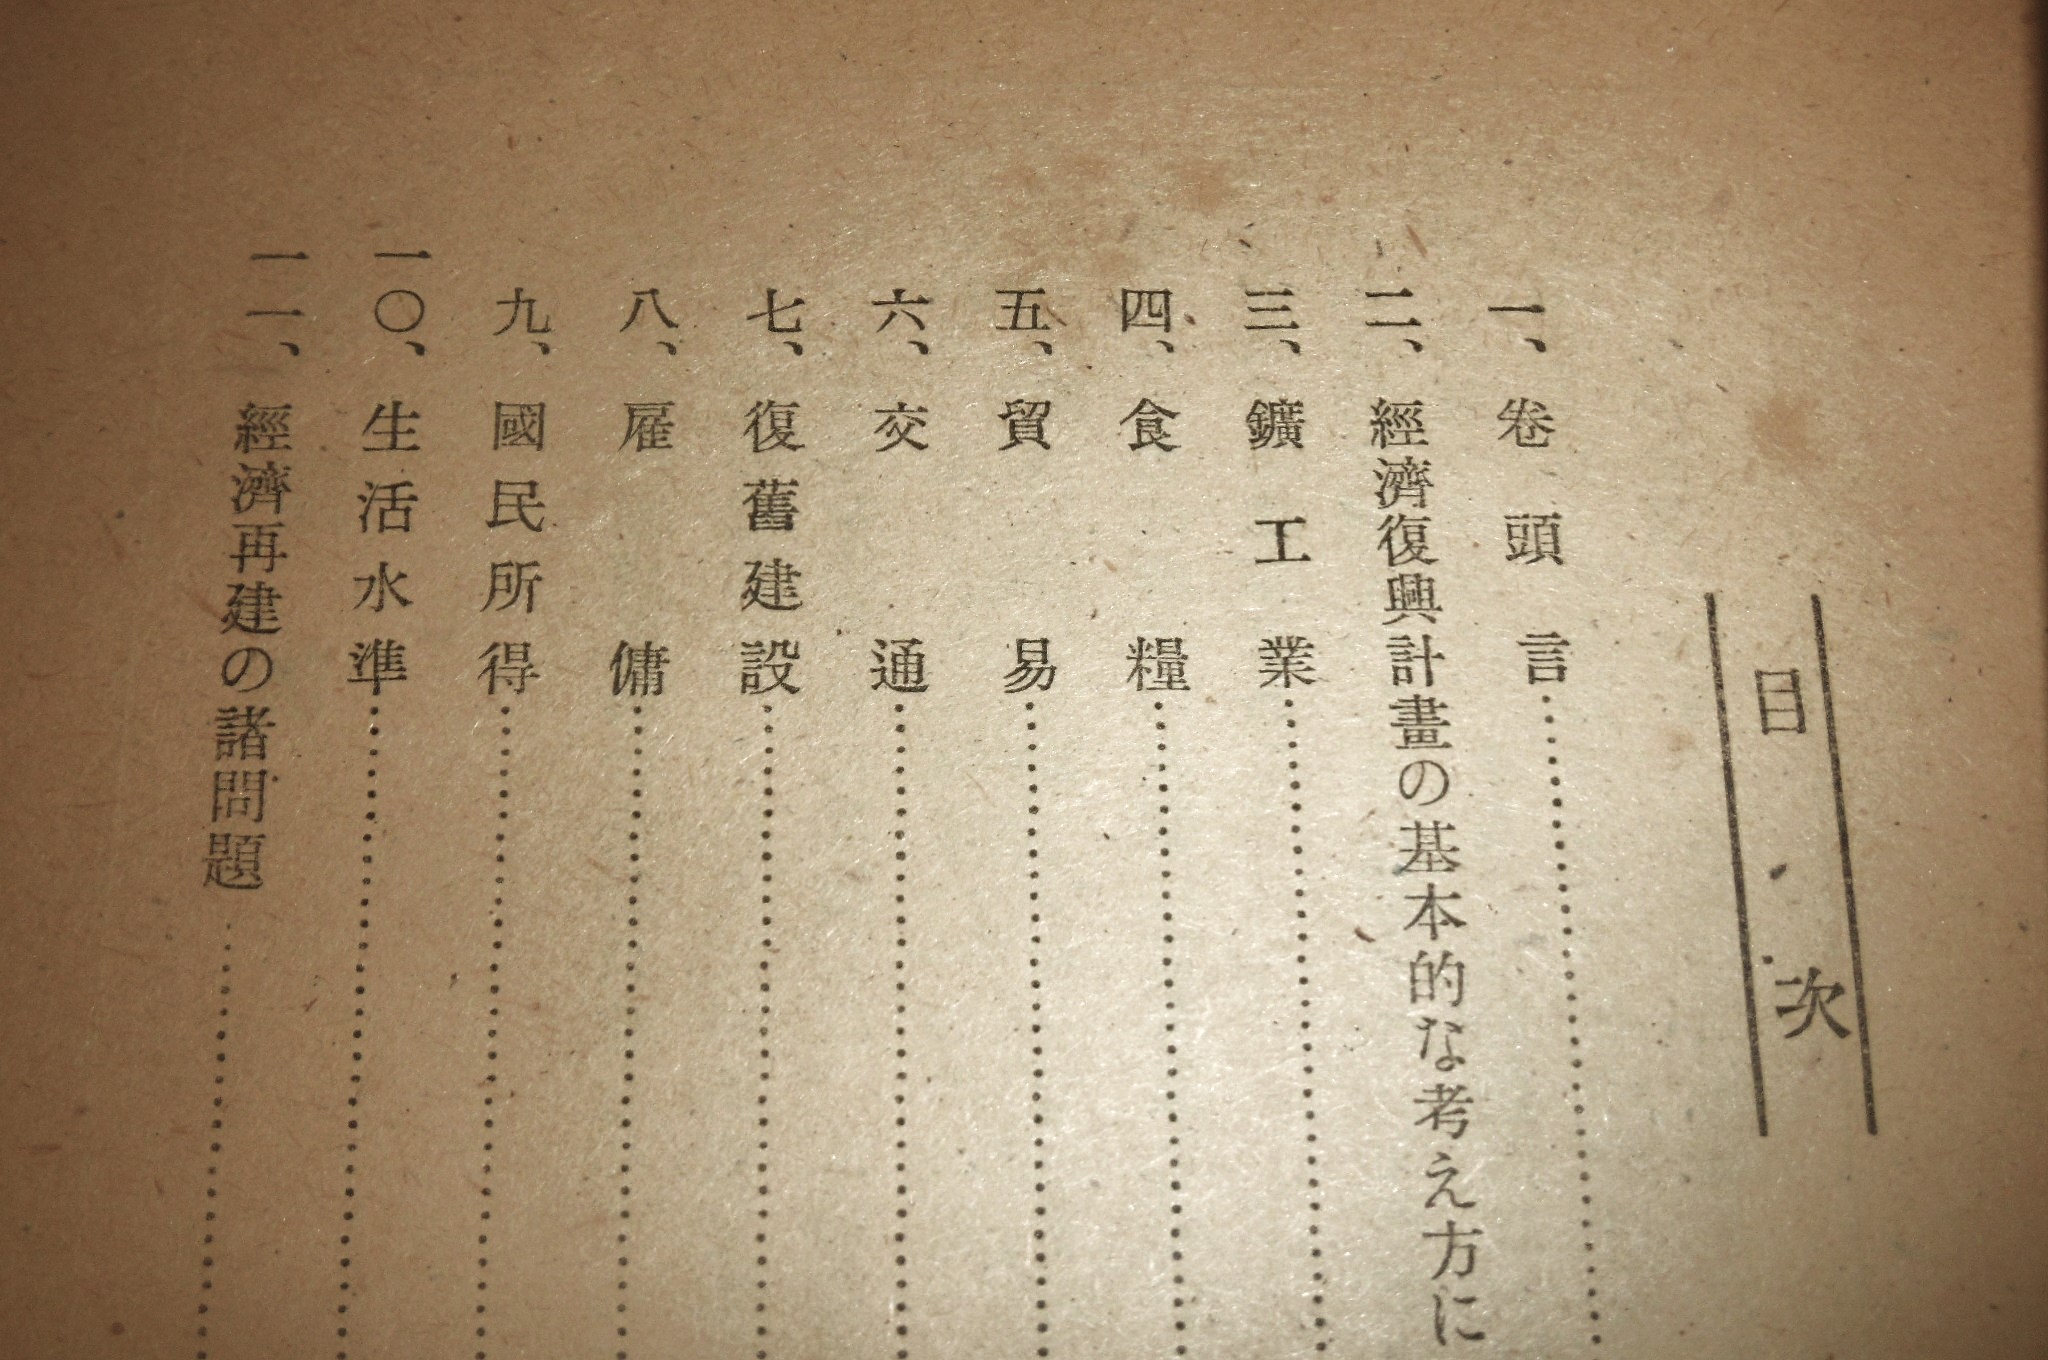 目次
一、卷頭言
二、經濟復興計畫の基本的な考え方に
三、鑛工業
四、食糧
五、貿易
六、交通
七、復舊建設
八、雇傭
九、國民所得
一〇、生活水準
一一、經濟再建の諸問題